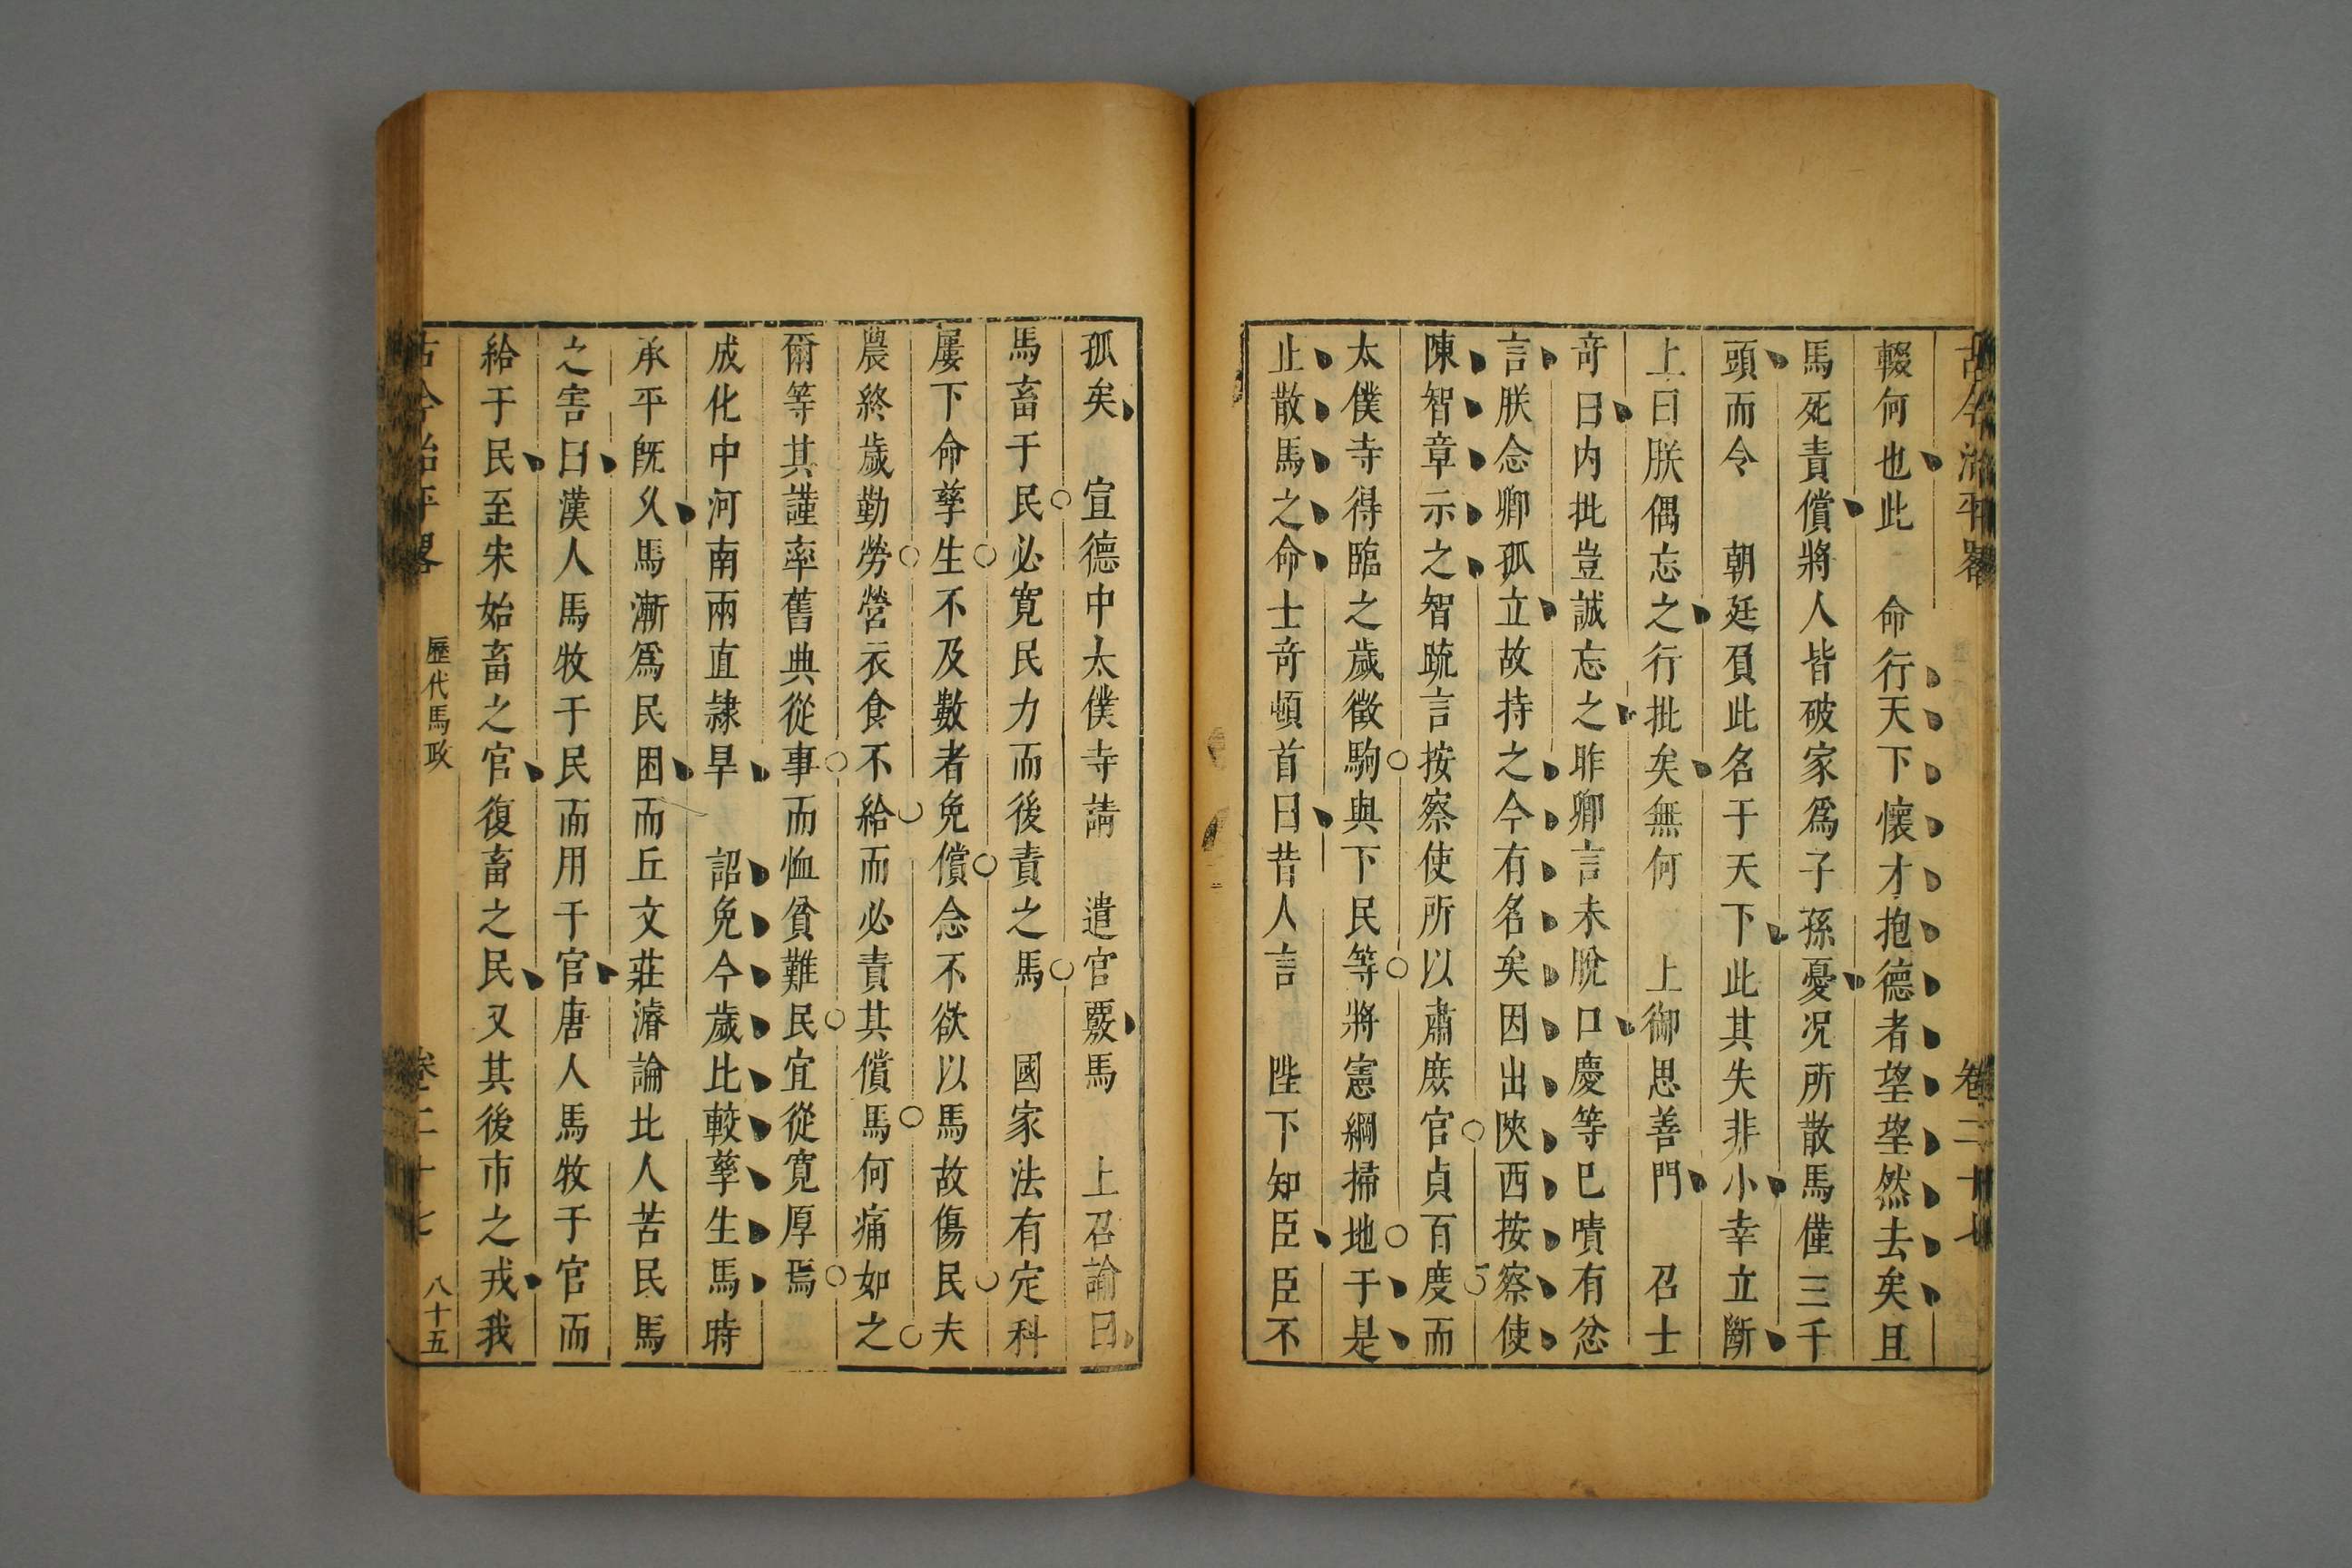 古今治平畧 卷二十七
輟何也此 命行天下懷才抱德者望望然去矣且
馬死責償將人皆破家爲子孫憂况所散馬僅三千
頭而令 朝廷負此名于天下此其失非小幸立斷
上曰朕偶忘之行批矣無何 上御思善門 召士
奇曰内批豈誠忘之昨卿言未脫口慶等已嘖有忿
言朕念卿孤立故持之今有名矣因出陜西按察使
陳智章示之智疏言按察使所以肅庶官貞百度而
太僕寺得臨之歲徵駒與下民等將憲綱掃地于是
止散馬之命士奇頓首曰昔人言 陛下知臣臣不
孤矣 宣德中太僕寺請 遣官覈馬 上召諭曰
馬畜于民必寬民力而後責之馬 國家法有定科
屢下命孳生不及數者免償念不欲以馬故傷民夫
農終歲勤勞營衣食不給而必責其償馬何痛如之
爾等其謹率舊典從事而恤貧難民宜從寬厚焉
成化中河南兩直隷旱 詔免今歲比較孳生馬時
承平旣久馬漸爲民困而丘文莊濬論北人苦民馬
之害曰漢人馬牧于民而用于官唐人馬牧于官而
給于民至宋始畜之官復畜之民又其後市之戎我
古今治平畧 歷代馬政 卷二十七 八十五